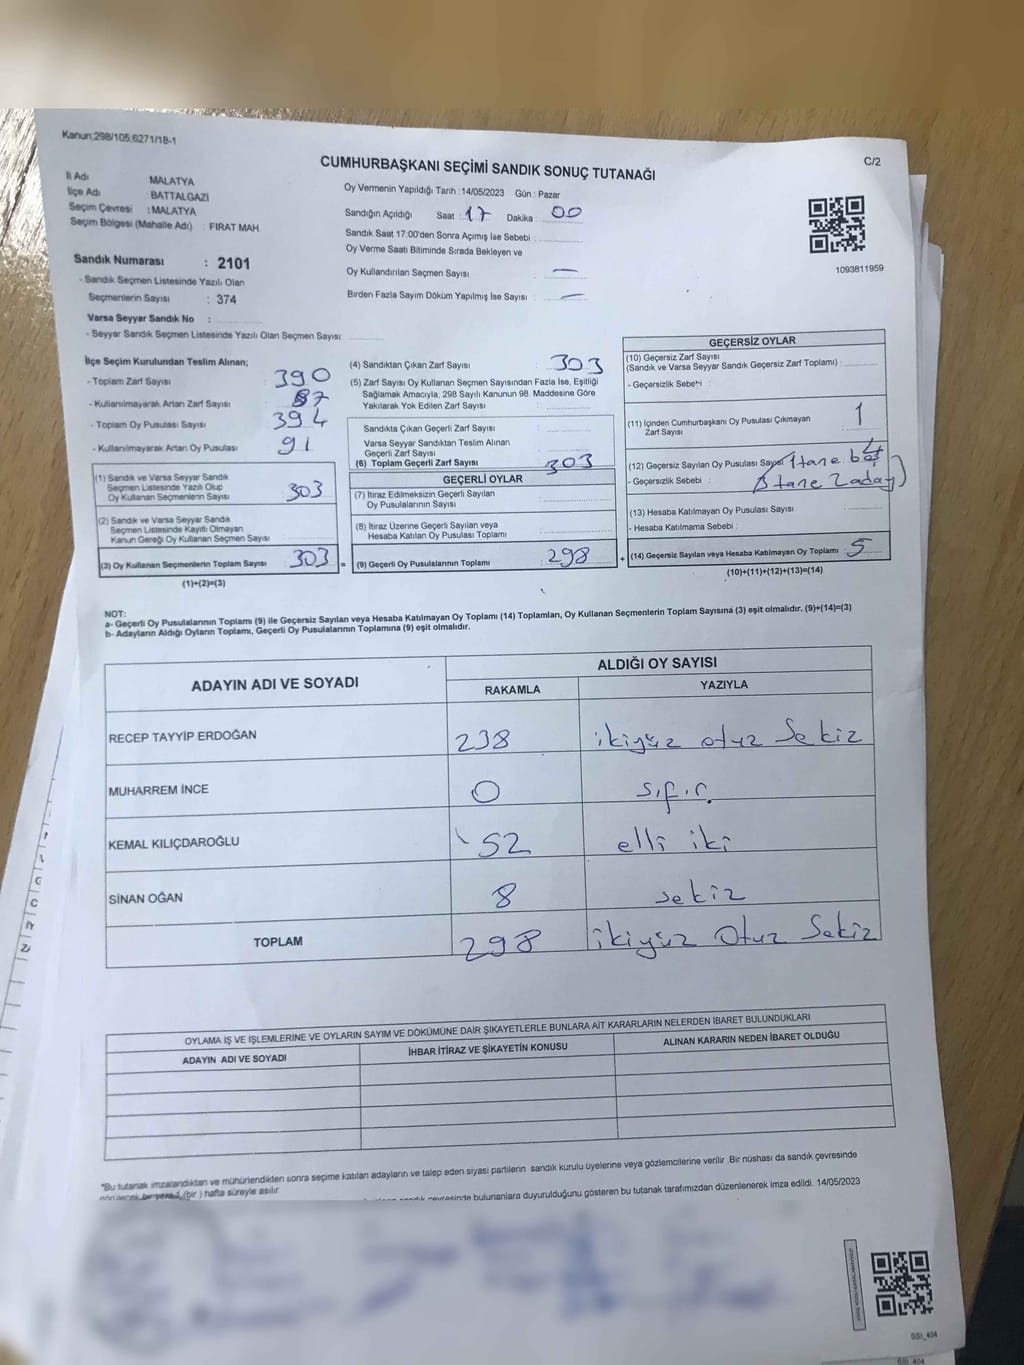 Kanun;298/105;6271/18-1
C/2
CUMHURBAŞKANI SEÇİMİ SANDIK SONUÇ TUTANAĞI
İl Adı : MALATYA
İlçe Adı : BATTALGAZİ
Seçim Çevresi : MALATYA
Seçim Bölgesi (Mahalle Adı) : FIRAT MAH.
Sandık Numarası : 2101
- Sandık Seçmen Listesinde Yazılı Olan
Seçmenlerin Sayısı : 374
Varsa Seyyar Sandık No :
- Seyyar Sandık Seçmen Listesinde Yazılı Olan Seçmen Sayısı:
Oy Vermenin Yapıldığı Tarih :14/05/2023 Gün : Pazar
Sandığın Açıldığı Saat : 17 Dakika : 00
Sandık Saat 17:00'den Sonra Açımış İse Sebebi :
Oy Verme Saati Bitiminde Sırada Bekleyen ve
Oy Kullandırılan Seçmen Sayısı : —
Birden Fazla Sayım Döküm Yapılmış İse Sayısı : —
1093811959
İlçe Seçim Kurulundan Teslim Alınan;
- Toplam Zarf Sayısı 390
- Kullanılmayarak Artan Zarf Sayısı 87
- Toplam Oy Pusulası Sayısı 394
- Kullanılmayarak Artan Oy Pusulası 91
(1) Sandık ve Varsa Seyyar Sandık
Seçmen Listesinde Yazılı Olup
Oy Kullanan Seçmenlerin Sayısı : 303
(2) Sandık ve Varsa Seyyar Sandık
Seçmen Listesinde Kayıtlı Olmayan
Kanun Gereği Oy Kullanan Seçmen Sayısı :
(3) Oy Kullanan Seçmenlerin Toplam Sayısı : 303 =
(1)+(2)=(3)
(4) Sandıktan Çıkan Zarf Sayısı : 303
(5) Zarf Sayısı Oy Kullanan Seçmen Sayısından Fazla İse, Eşitliği
Sağlamak Amacıyla, 298 Sayılı Kanunun 98. Maddesine Göre
Yakılarak Yok Edilen Zarf Sayısı :
Sandıkta Çıkan Geçerli Zarf Sayısı :
Varsa Seyyar Sandıktan Teslim Alınan
Geçerli Zarf Sayısı :
(6) Toplam Geçerli Zarf Sayısı : 303
GEÇERLİ OYLAR
(7) İtiraz Edilmeksizin Geçerli Sayılan
Oy Pusulalarının Sayısı :
(8) İtiraz Üzerine Geçerli Sayılan veya
Hesaba Katılan Oy Pusulası Toplamı :
(9) Geçerli Oy Pusulalarının Toplamı : 298 +
GEÇERSİZ OYLAR
(10) Geçersiz Zarf Sayısı
(Sandık ve Varsa Seyyar Sandık Geçersiz Zarf Toplamı) :
- Geçersizlik Sebebi :
(11) İçinden Cumhurbaşkanı Oy Pusulası Çıkmayan
Zarf Sayısı : 1
(12) Geçersiz Sayılan Oy Pusulası Sayısı 1 tane boş
- Geçersizlik Sebebi : tane 2 aday
(13) Hesaba Katılmayan Oy Pusulası Sayısı :
- Hesaba Katılmama Sebebi :
(14) Geçersiz Sayılan veya Hesaba Katılmayan Oy Toplamı : 5
(10)+(11)+(12)+(13)=(14)
NOT:
a- Geçerli Oy Pusulalarının Toplamı (9) ile Geçersiz Sayılan veya Hesaba Katılmayan Oy Toplamı (14) Toplamları, Oy Kullanan Seçmenlerin Toplam Sayısına (3) eşit olmalıdır. (9)+(14)=(3)
b- Adayların Aldığı Oyların Toplamı, Geçerli Oy Pusulalarının Toplamına (9) eşit olmalıdır.
ADAYIN ADI VE SOYADI ALDIĞI OY SAYISI
RAKAMLA YAZIYLA
RECEP TAYYİP ERDOĞAN 238 ikiyüz otuz Sekiz
MUHARREM İNCE 0 sıfır.
KEMAL KILIÇDAROĞLU 52 elli iki
SİNAN OĞAN 8 sekiz
TOPLAM 298 ikiyüz Otuz Sekiz
OYLAMA İŞ VE İŞLEMLERİNE VE OYLARIN SAYIM VE DÖKÜMÜNE DAİR ŞİKAYETLERLE BUNLARA AİT KARARLARIN NELERDEN İBARET BULUNDUKLARI
ADAYIN ADI VE SOYADI İHBAR İTİRAZ VE ŞİKAYETİN KONUSU ALINAN KARARIN NEDEN İBARET OLDUĞU
*Bu tutanak imzalandıktan ve mühürlendikten sonra seçime katılan adayların ve talep eden siyasi partilerin sandık kurulu üyelerine veya gözlemcilerine verilir .Bir nüshası da sandık çevresinde
görülecek bir yere 1 (bir ) hafta süreyle asılır.
sandık çevresinde bulunanlara duyurulduğunu gösteren bu tutanak tarafımızdan düzenlenerek imza edildi. 14/05/2023